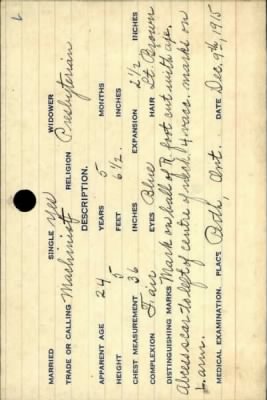 MARRIED SINGLE yes WIDOWER
TRADE OR CALLING Machinist RELIGION Presbyterian
DESCRIPTION.
APPARENT AGE 24 YEARS 5 MONTHS
HEIGHT 5 FEET 6½ INCHES
CHEST MEASUREMENT 36 INCHES EXPANSION 2½ INCHES
COMPLEXION Fair EYES Blue HAIR Lt Brown
DISTINGUISHING MARKS Mark on ball of R. foot cut with axe.
Abcess scar to left of centre of neck. 4 vacc. marks on
L. arm.
MEDICAL EXAMINATION. PLACE Ont. DATE Dec. 9th, 1915